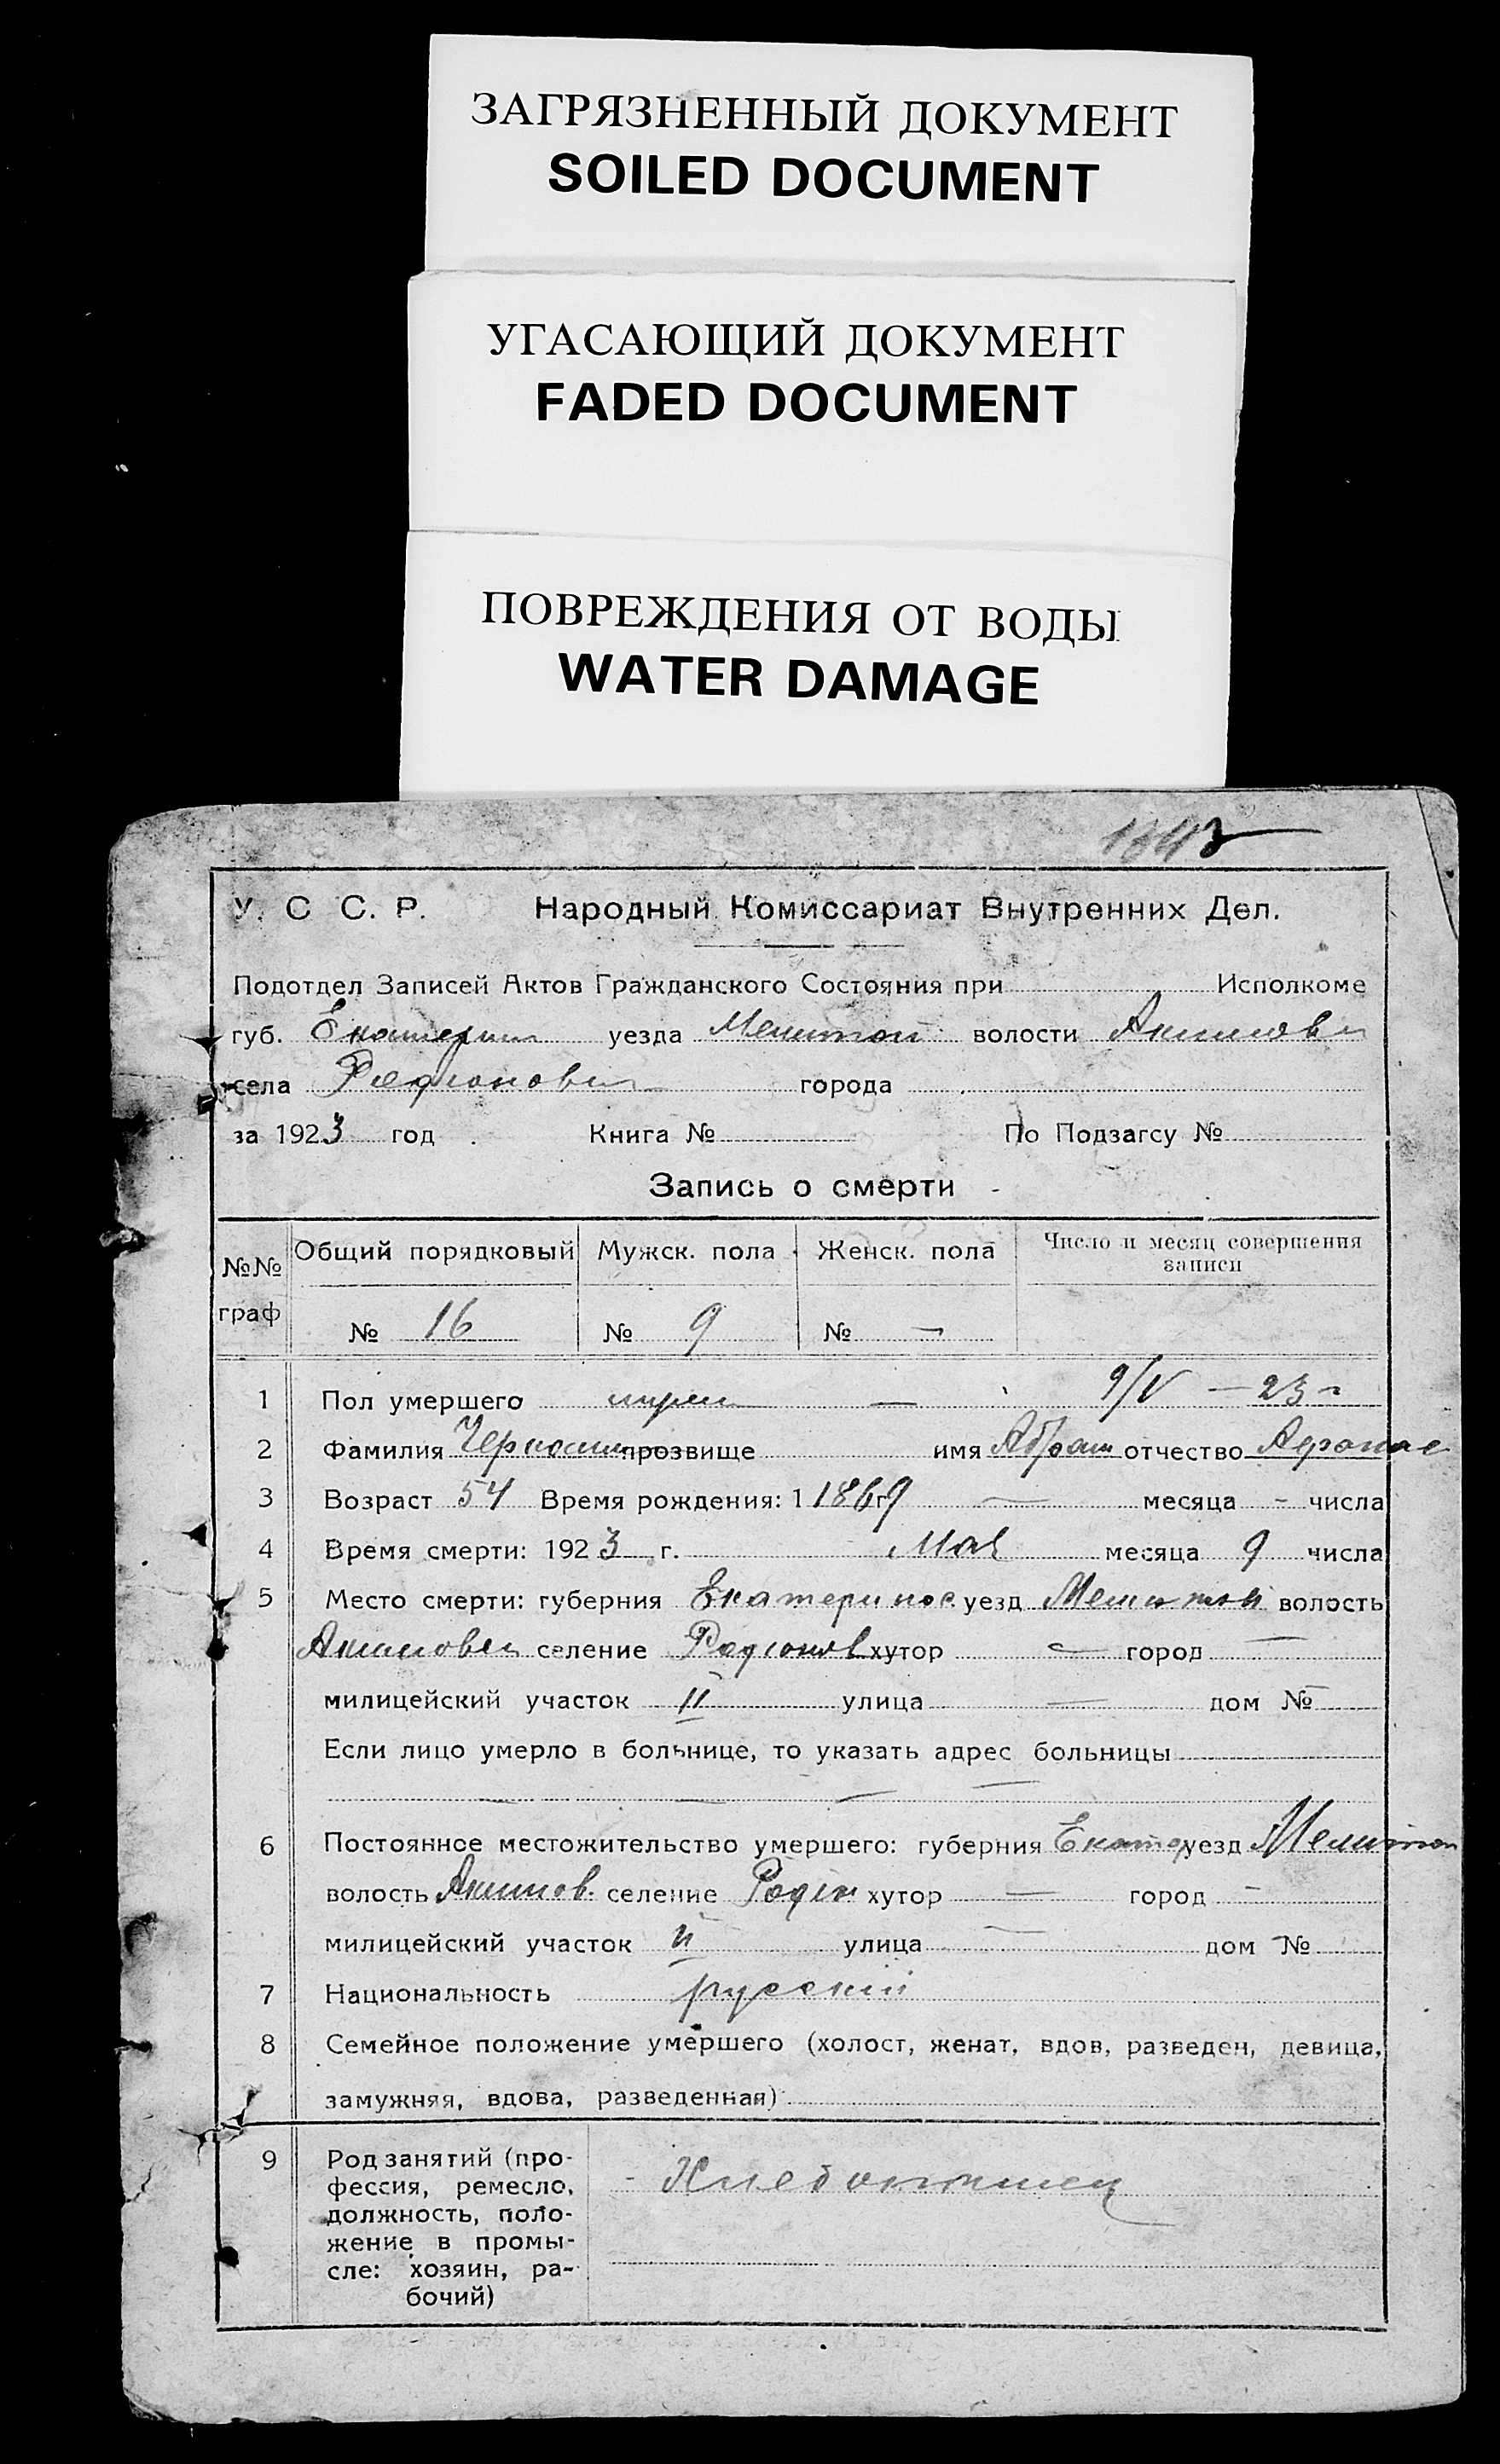 ЗАГРЯЗНЕННЫЙ ДОКУМЕНТ
SOILED DOCUMENT
УГАСАЮЩИЙ ДОКУМЕНТ
FADED DOCUMENT
ПОВРЕЖДЕНИЯ ОТ ВОДЫ
WATER DAMAGE
У. С С. Р. Народный Комиссариат Внутренних Дел.
Подотдел Записей Актов Гражданского Состояния при Исполкоме
губ. Екатерин уезда Мелитоп волости Акимовк
села Радионовка города
за 1923 год Книга № По Подзагсу №
Запись о смерти
№№ граф Общий порядковый Мужск. пола Женск. пола Число и месяц совершения записи
№ 16 № 9 № —
1 Пол умершего мужск — 9/V — 23 г
2 Фамилия прозвище имя Абрам отчество Афанас
3 Возраст 54 Время рождения: 1 1869 г — месяца - числа
4 Время смерти: 1923 г. Мая месяца 9 числа
5 Место смерти: губерния Екатеринос уезд Мелитоп волость
Акимовск селение Радионов хутор — город —
милицейский участок II улица — дом №
Если лицо умерло в больнице, то указать адрес больницы
— — — —
6 Постоянное местожительство умершего: губерния Екатер уезд Мелитоп
волость Акимов. селение Радион хутор — город —
милицейский участок II улица — дом №
7 Национальность русский
8 Семейное положение умершего (холост, женат, вдов, разведен, девица,
замужняя, вдова, разведенная)
9 Род занятий (про-
фессия, ремесло,
должность, поло-
жение в промы-
сле: хозяин, ра-
бочий)
Хлебопашец